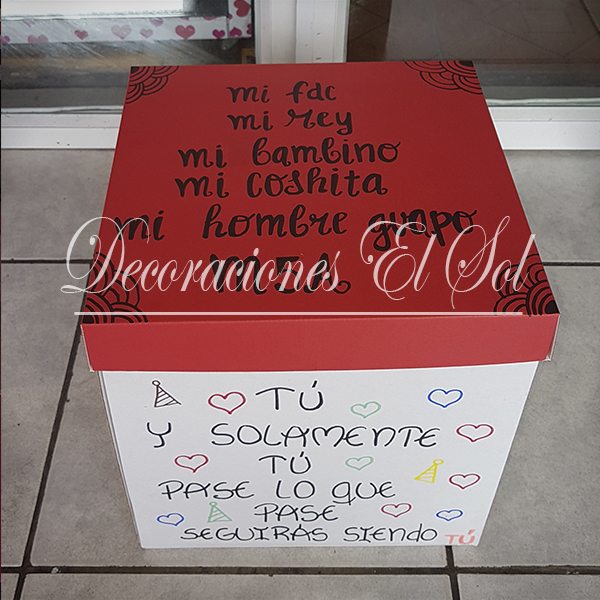 mi fdc
mi rey
mi bambino
mi coshita
mi hombre guapo
Decoraciones El Sol
TÚ
Y SOLAMENTE
TÚ
PASE LO QUE
PASE
SEGUIRÁS SIENDO TÚ